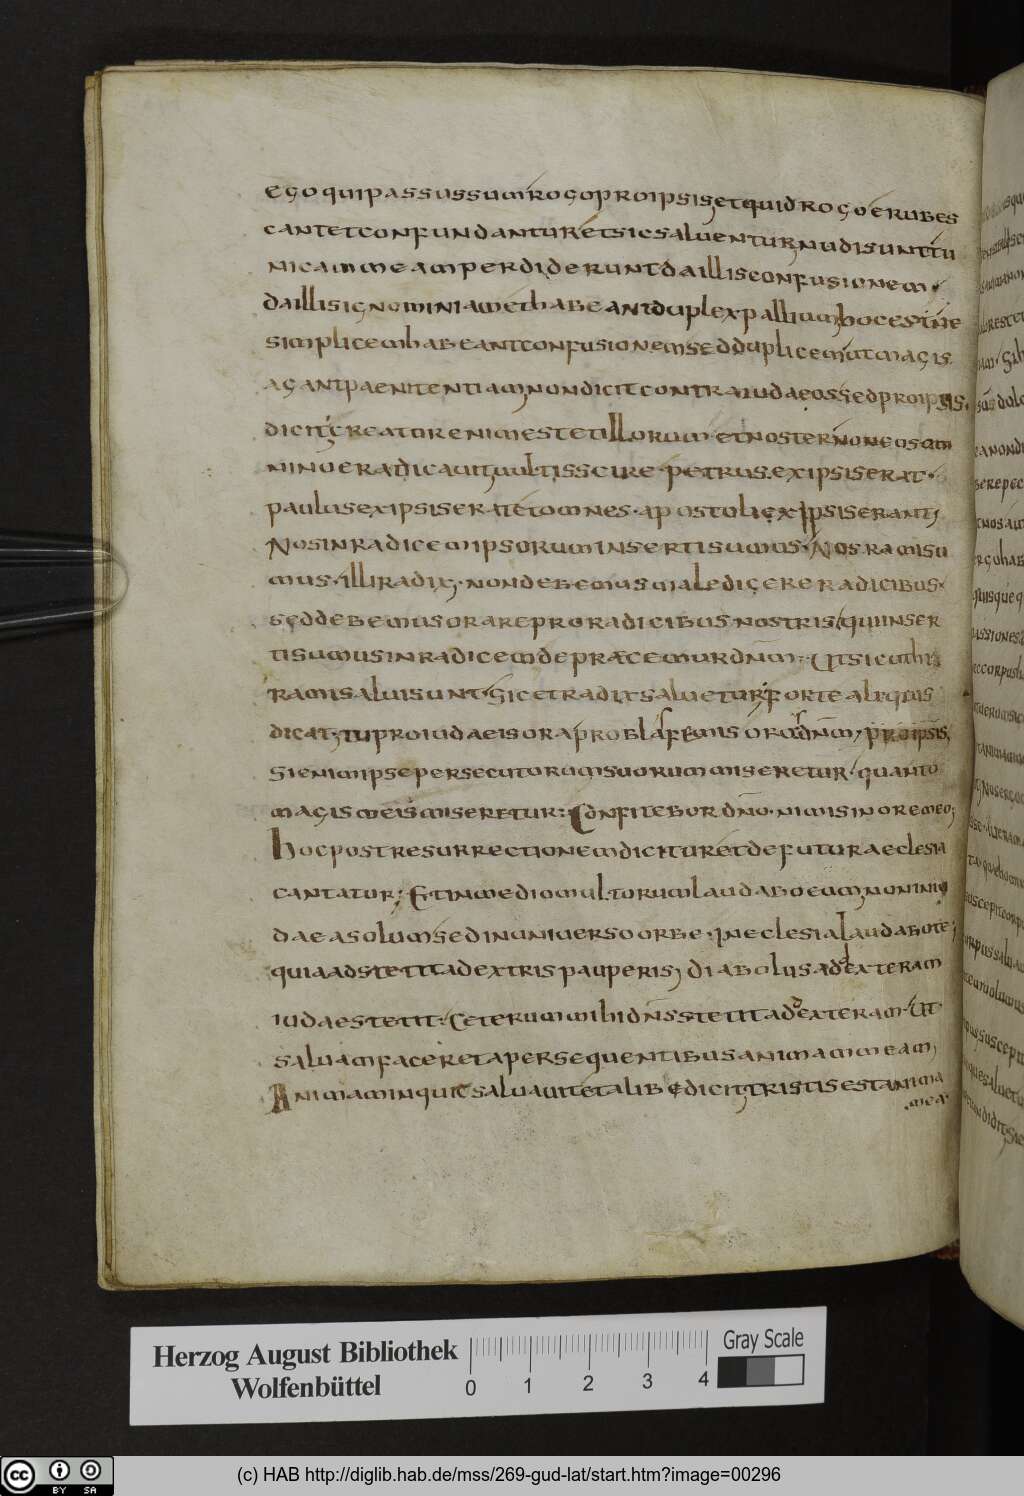 ego qui passus sum rogo pro ipsis et quid rogo erubes
cant et confundantur et sic saluentur nudi sunt tu
nicam meam perdiderunt da illis confusionem
da illis ignominiam et habeant duplex pallium hoc est ne
simplicem habeant confusionem sed duplicem ut magis
agant paenitentiam non dicit contra iudaeos sed pro ipsis
dicit creator enim est et illorum et noster non eos om
nino eradicauit uultis scire petrus ex ipsis erat
paulus ex ipsis erat et omnes apostoli ex ipsis erant
Nos in radicem ipsorum inserti sumus Nos rami su
mus illi radix non debemus maledicere radicibus
sed debemus orare pro radicibus nostris qui inser
ti sumus in radicem depræcemur dnm Ut sicut hi
rami salui sunt Sic et radix saluetur forte aliquis
dicat tu pro iudaeis oras pro blasfemis oras dnm pro ipsis
Si enim ipse persecutorum suorum miseretur quanto
magis meis miseretur Confitebor dno nimis in ore meo
hoc post resurrectionem dicitur et de futura eclesia
cantatur Et in medio multorum laudabo eum non in iu
daea solum sed in uniuerso orbe In eclesia laudabo te
quia adstetit ad extris pauperis diabolus ad dexteram
iudae stetit Ceterum mihi dns stetit ad dexteram Ut
saluam faceret a persequentibus animam meam
Animam inquit saluauit et alibe dicit tristis est anima
mea
Herzog August Bibliothek
Wolfenbüttel
0 1 2 3 4
Gray Scale
cc BY SA
(c) HAB http://diglib.hab.de/mss/269-gud-lat/start.htm?image=00296